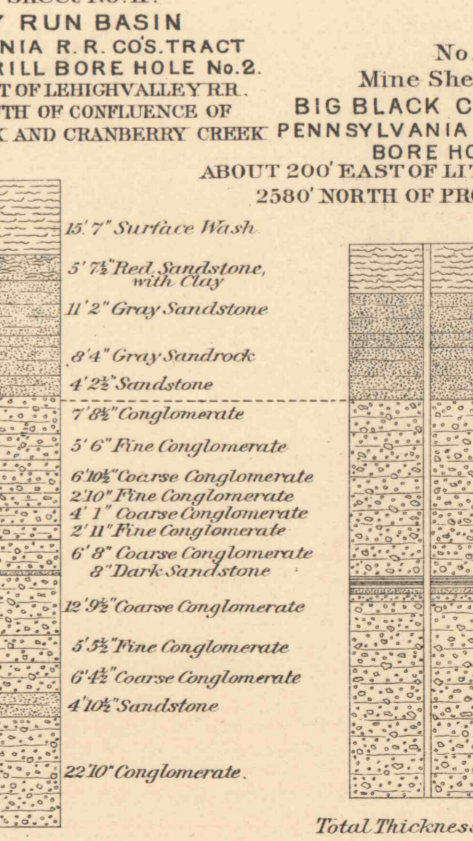 Y RUN BASIN
NIA R. R. CO'S. TRACT
RILL BORE HOLE No. 2.
T OF LEHIGH VALLEY R R.
TH OF CONFLUENCE OF
K AND CRANBERRY CREEK
No.
Mine She
BIG BLACK C
PENNSYLVANIA
BORE HO
ABOUT 200' EAST OF LIT
2580' NORTH OF PRO
15' 7" Surface Wash
5' 7½" Red Sandstone,
with Clay
11' 2" Gray Sandstone
8' 4" Gray Sandrock
4' 2½" Sandstone
7' 8½" Conglomerate
5' 6" Fine Conglomerate
6' 10½" Coarse Conglomerate
2' 10" Fine Conglomerate
4' 1" Coarse Conglomerate
2' 11" Fine Conglomerate
6' 8" Coarse Conglomerate
8" Dark Sandstone
12' 9½" Coarse Conglomerate
5' 5½" Fine Conglomerate
6' 4½" Coarse Conglomerate
4' 10½" Sandstone
22' 10" Conglomerate.
Total Thickness